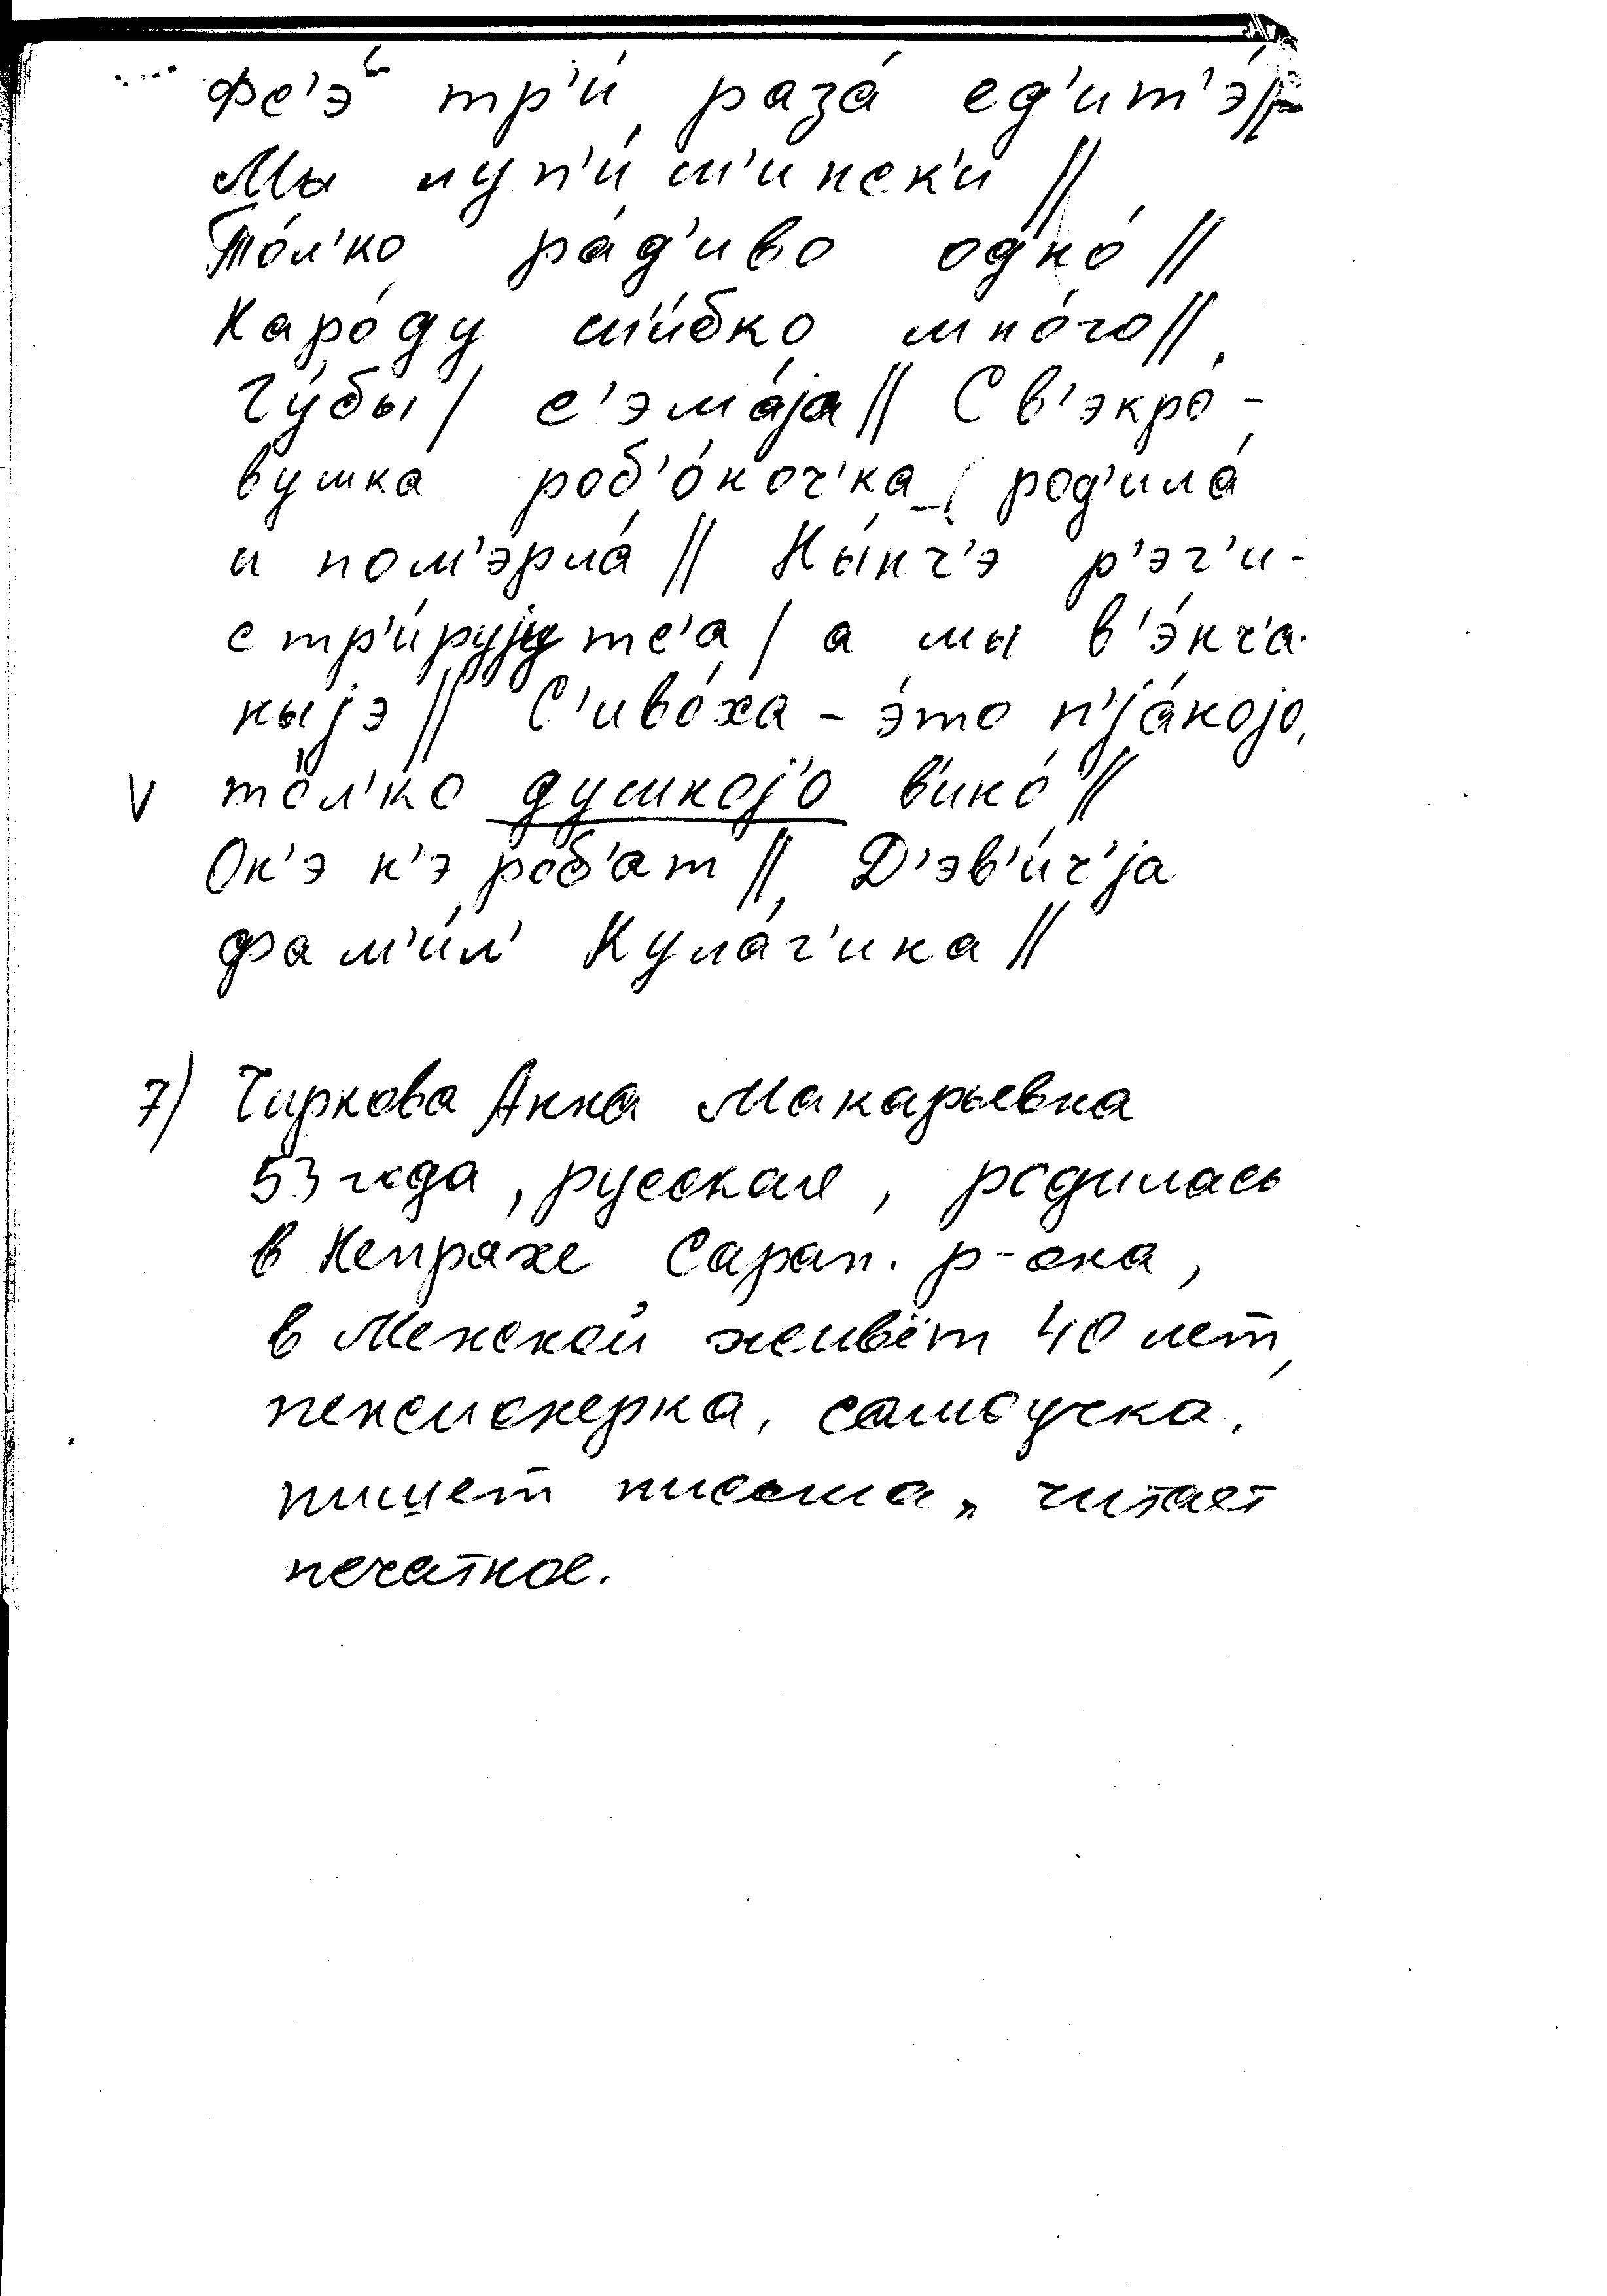 фс'э́ тр'и́ раза́ ед'ит'э́ //
Мы луп'и́ш'ински //
То́л'ко ра́д'иво одно́ //
Наро́ду ши́бко мно́го //
Гу́бы / с'эма́jа // Св'экро́-
вушка роб'о́ноч'ка / род'ила́
и пом'эрла́ // Ны́нч'э р'эг'и-
стр'и́руjутс'а / а мы в'э́нч'а-
ныjэ // С'иво́ха - э́то п'jа́ноjо,
V то́л'ко душноjо вино́ //
Он'э н'э роб'ат // Д'эв'и́ч'jа
фам'и́л' Кула́г'ина //
7) Чиркова Анна Макарьевна
53 года, русская, родилась
в Непряхе Сарап. р-она,
в Менской живёт 40 лет,
пенсионерка, самоучка,
пишет письма, читает
печатное.